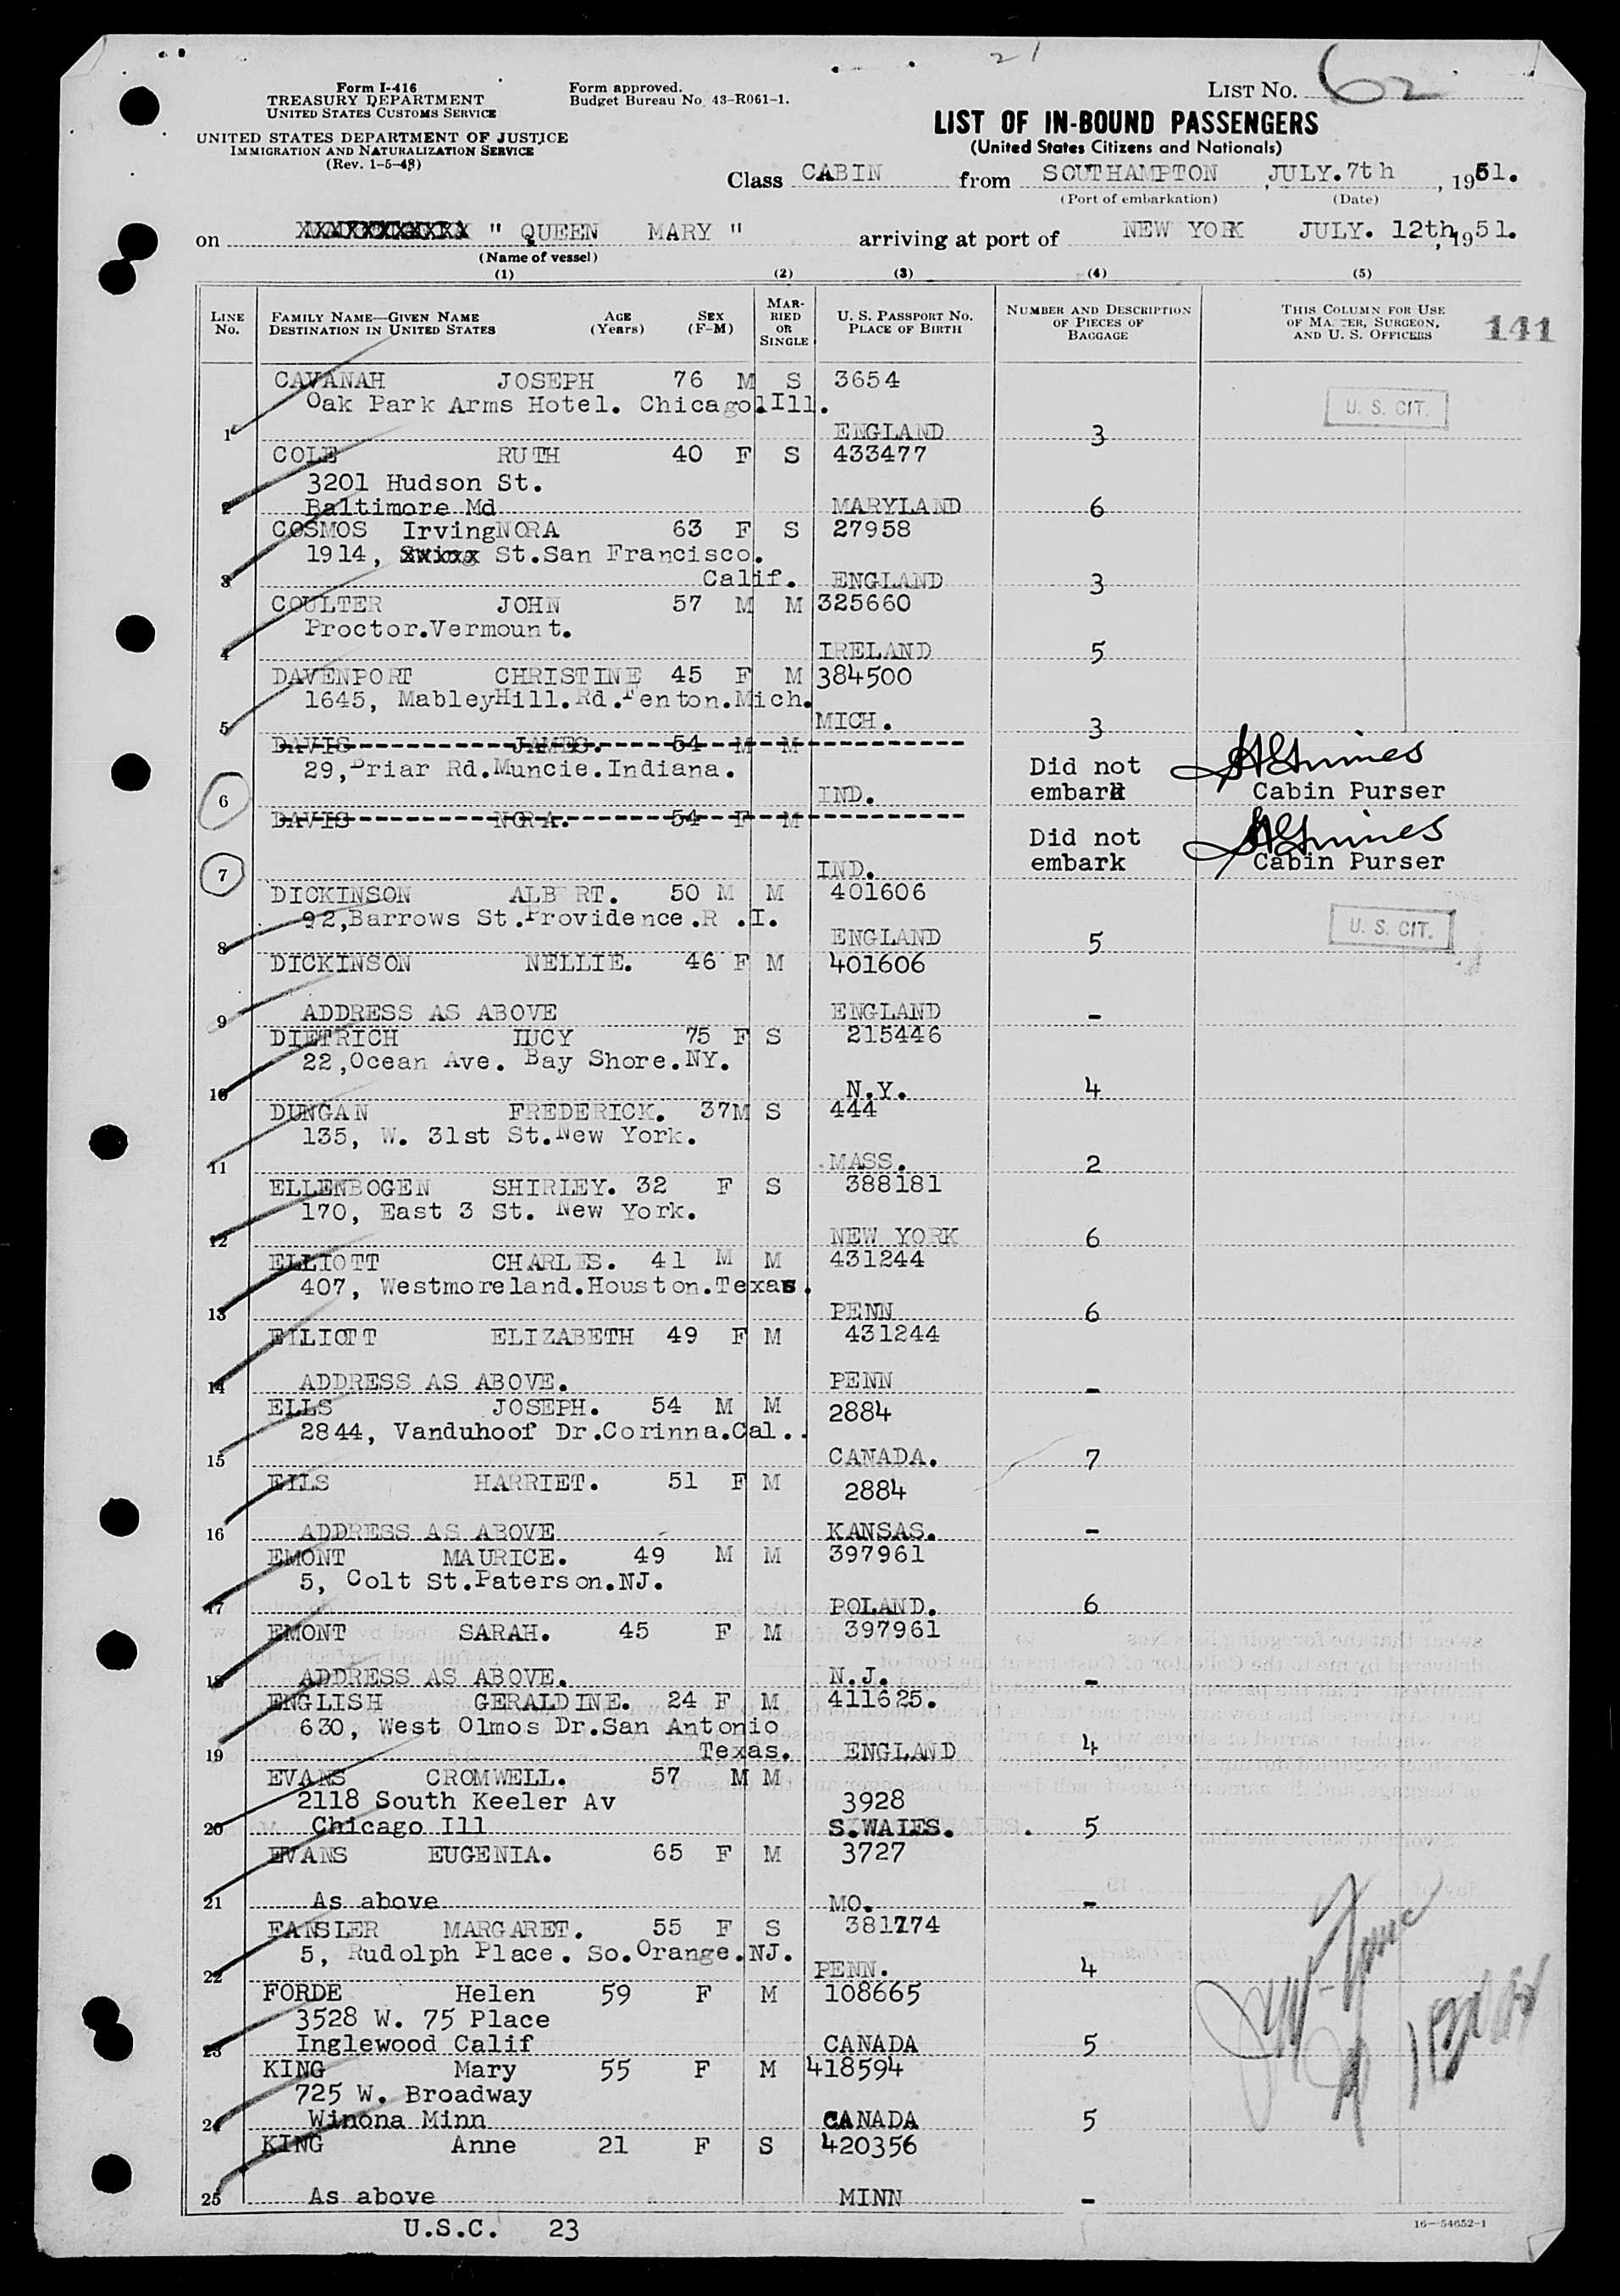 21
Form I-416
TREASURY DEPARTMENT
UNITED STATES CUSTOMS SERVICE
Form approved.
Budget Bureau No. 43-R061-1.
LIST NO. 62
UNITED STATES DEPARTMENT OF JUSTICE
IMMIGRATION AND NATURALIZATION SERVICE
(Rev. 1-5-48)
LIST OF IN-BOUND PASSENGERS
(United States Citizens and Nationals)
Class CABIN from SOUTHAMPTON , JULY.7th , 1951.
(Port of embarkation) (Date)
on " QUEEN MARY " arriving at port of NEW YORK JULY. 12th, 1951.
(Name of vessel)
(1) (2) (3) (4) (5)
LINE No. FAMILY NAME—GIVEN NAME DESTINATION IN UNITED STATES AGE (Years) SEX (F-M) MARRIED OR SINGLE U. S. PASSPORT NO. PLACE OF BIRTH NUMBER AND DESCRIPTION OF PIECES OF BAGGAGE THIS COLUMN FOR USE OF MASTER, SURGEON, AND U. S. OFFICERS 141
CAVANAH JOSEPH 76 M S 3654
Oak Park Arms Hotel. Chicago.Ill. U. S. CIT.
1 ENGLAND 3
COLE RUTH 40 F S 433477
3201 Hudson St.
2 Baltimore Md MARYLAND 6
COSMOS Irving NORA 63 F S 27958
1914, St.San Francisco.
3 Calif. ENGLAND 3
COULTER JOHN 57 M M 325660
Proctor.Vermount.
4 IRELAND 5
DAVENPORT CHRISTINE 45 F M 384500
1645, MableyHill.Rd.Fenton.Mich.
5 MICH. 3
DAVIS JAMES. 54 M M
29,Briar Rd.Muncie.Indiana. Did not
6 IND. embark Cabin Purser
DAVIS NORA. 54 F M
Did not
7 IND. embark Cabin Purser
DICKINSON ALB RT. 50 M M 401606
92,Barrows St.Providence.R .I. U. S. CIT.
8 ENGLAND 5
DICKINSON NELLIE. 46 F M 401606
9 ADDRESS AS ABOVE ENGLAND -
DIETRICH LUCY 75 F S 215446
22,Ocean Ave. Bay Shore.NY.
10 N.Y. 4
DUNGAN FREDERICK. 37M S 444
135, W. 31st St.New York.
11 MASS. 2
ELLENBOGEN SHIRLEY. 32 F S 388181
170, East 3 St. New York.
12 NEW YORK 6
ELLIOTT CHARLES. 41 M M 431244
407, Westmoreland.Houston.Texas.
13 PENN 6
ELLIOTT ELIZABETH 49 F M 431244
14 ADDRESS AS ABOVE. PENN -
ELLS JOSEPH. 54 M M 2884
2844, Vanduhoof Dr.Corinna.Cal..
15 CANADA. 7
ELLS HARRIET. 51 F M 2884
16 ADDRESS AS ABOVE KANSAS. -
EMONT MAURICE. 49 M M 397961
5, Colt St.Paterson.NJ.
17 POLAND. 6
EMONT SARAH. 45 F M 397961
18 ADDRESS AS ABOVE. N.J. -
ENGLISH GERALDINE. 24 F M 411625.
630, West Olmos Dr.San Antonio
19 Texas. ENGLAND 4
EVANS CROMWELL. 57 M M
2118 South Keeler Av 3928
20 Chicago Ill S.WALES. 5
EVANS EUGENIA. 65 F M 3727
21 As above MO. -
FANSLER MARGARET. 55 F S 381174
5, Rudolph Place. So.Orange.NJ.
22 PENN. 4
FORDE Helen 59 F M 108665
3528 W. 75 Place
23 Inglewood Calif CANADA 5
KING Mary 55 F M 418594
725 W. Broadway
24 Winona Minn CANADA 5
KING Anne 21 F S 420356
25 As above MINN -
U.S.C. 23
16—54652-1